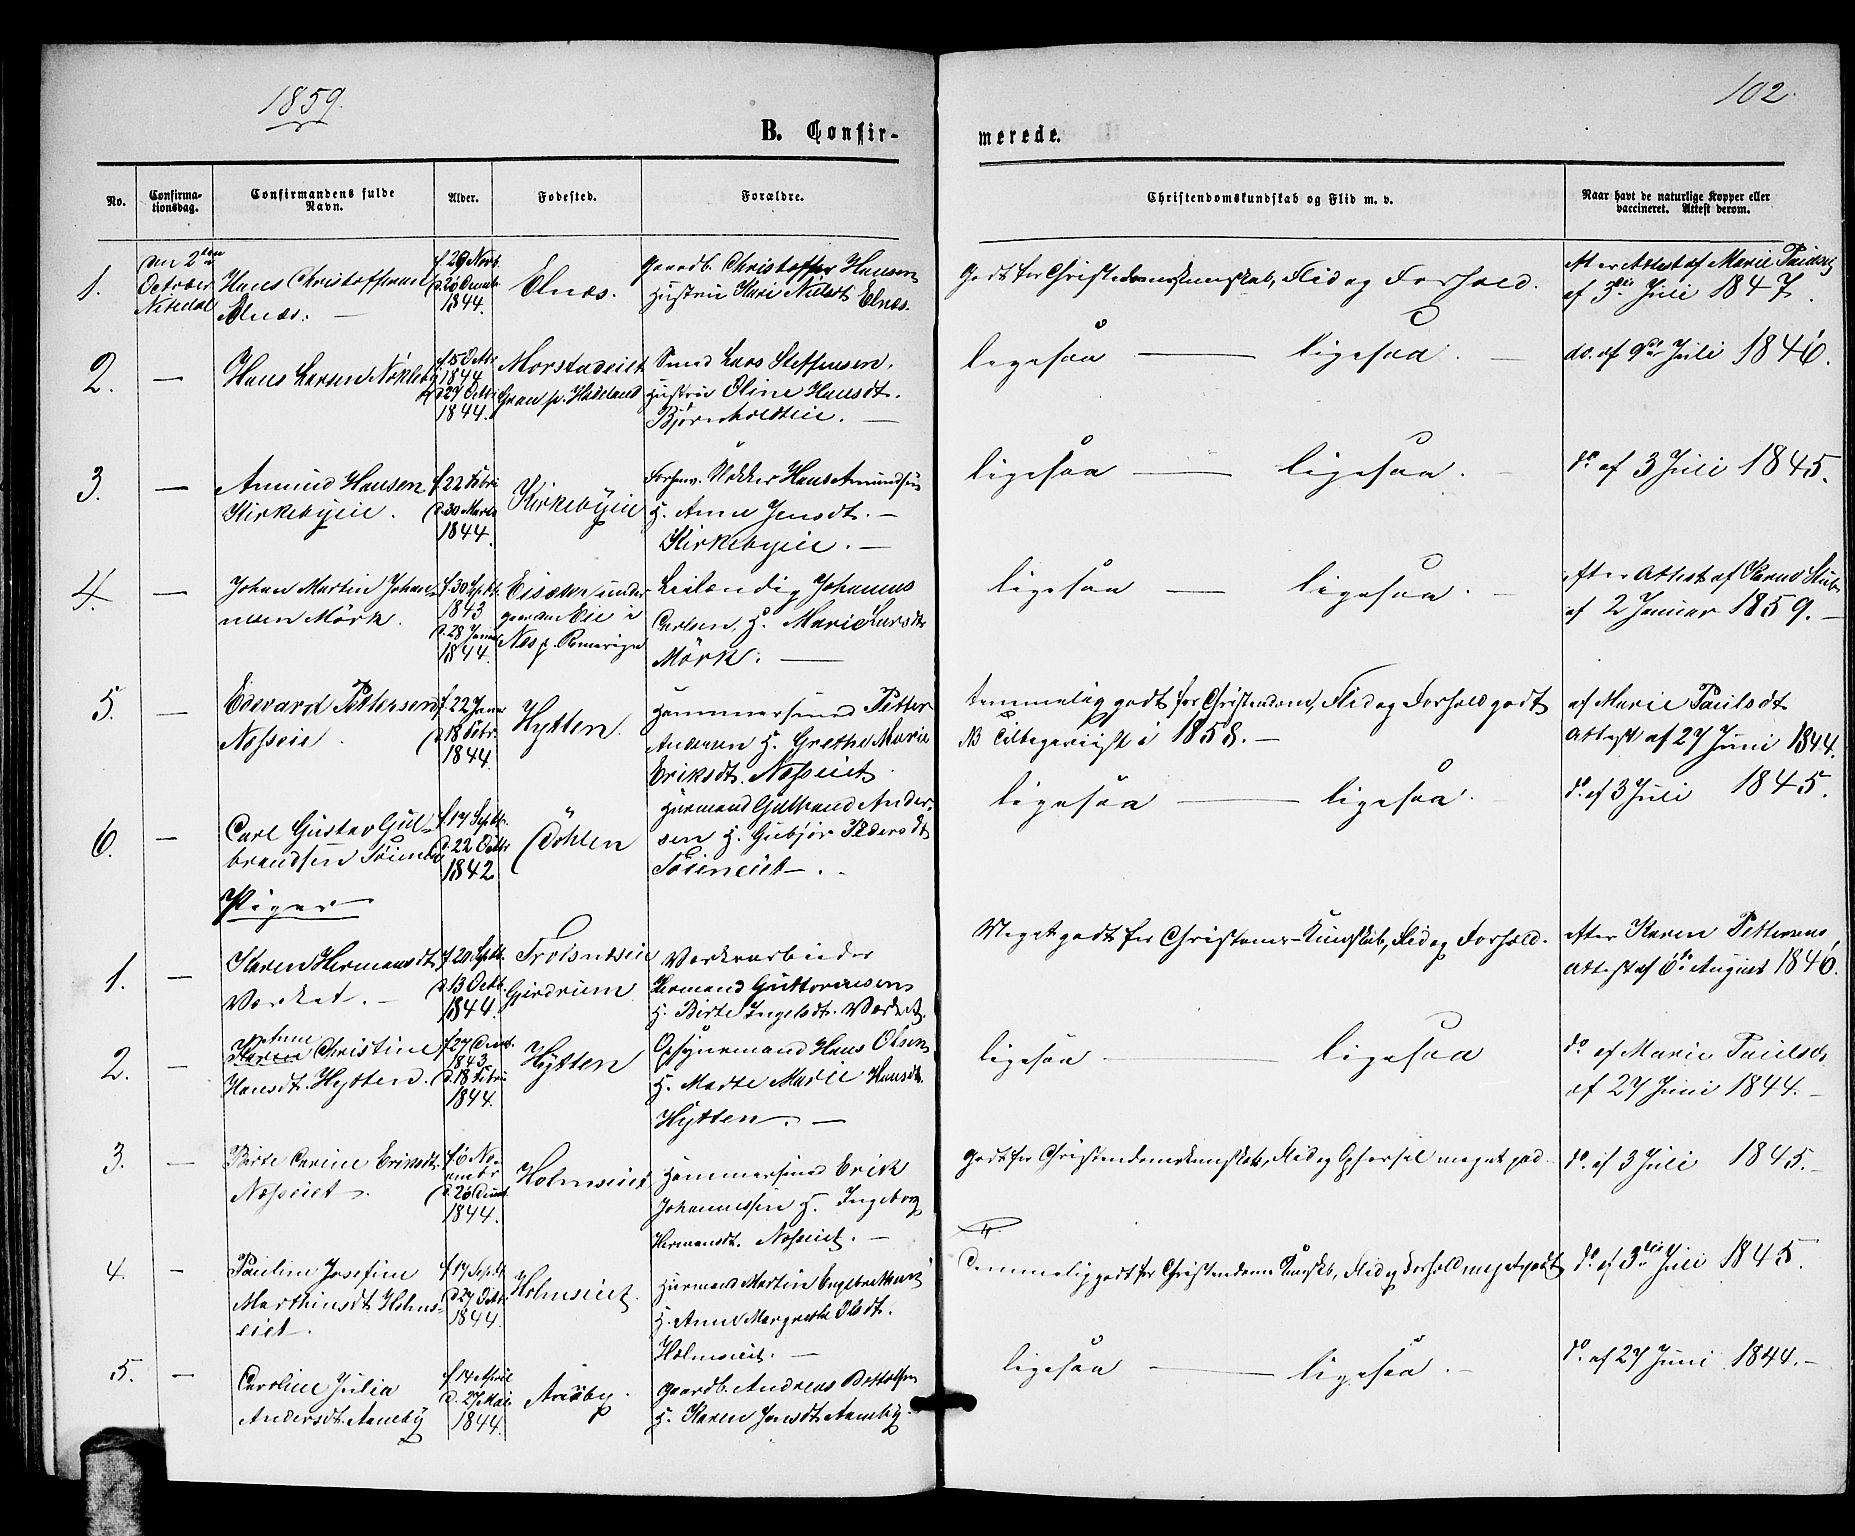 1859.
102.
B. Confir-
merede.
No.
Confirma-
tionsdag.
Confirmandens fulde
Navn.
Alder.
Fødested.
Forældre.
Christendomskundskab og Flid m. v.
Naar havt de naturlige Kopper eller
vaccineret. Attest derom.
1.
den 2den
October
Hans Christoffersen
Elnæs.
f. 29 Novb.
d. 26 Decembr
1844.
Elnæs.
Gaardb. Christoffer Hansen
Hustrue Kari Nielsdt Elnes.
Godt for Christendomskundskab, Flid og Forhold.
efter Attest af Marie Paulsdt
af 3die Juli 1847.
2.
—
Hans Larsen Nökleby
f. 5 Octbr
1844
d. 27 Octbr
1844.
Morstadeiet
Gran p. Hadeland
Smed Lars Steffensen.
Hustrue Oline Hansdt.
Björnholteie. —
ligesaa — ligesaa. —
do. af 9de Juli 1846.
3.
—
Amund Hansen
Kirkebyeie.
f. 22 Febr
d. 30 Marts
1844.
Kirkebyeie
Forhenv. Klokker Hans Amundsen
H. Anne Jensdt. —
Kirkebyeie. —
ligesaa — ligesaa. —
do. af 3 Juli 1845.
4.
—
Johan Martin Johan-
nesen Mörk.
f. 30 Septb.
1843
d. 28 Januar
1844.
under
Eie i
Næs p. Romerige
Leilænding Johannes
Carlsen, H. Marie Larsdt
Mörk. —
ligesaa — ligesaa. —
efter Attest af
af 2 Januar 1859. —
5.
—
Edevard Pettersen
Næsseie.
f. 22 Januar
d. 18 Febr.
1844.
Hytten.
Hammersmed Petter
Andersen H. Grethe Marie
Eriksdt. Næsseiet.
temmelig godt for Christendom, Flid og Forhold godt
NB Tilbageviist i 1858. —
af Marie Paulsdt
Attest af 27 Juni 1844.
6.
—
Carl Gustav Gul-
brandsen
f. 17 Septbr.
d. 22 Octbr
1842
Döhlen
Huusmand Gulbrand Ander-
sen H. Gubjör Pedersdt
ligesaa — ligesaa.
do. af 3 Juli 1845.
Piger
1.
—
Karen Hermansdt.
Værket. —
f. 20 Septb.
d. 13 Octb.
1844.
Gjerdrum
Værksarbeider
Herman Guttormsen
H. Birte Ingelsdt. Værket.
Meget godt for Christend-Kundskab, Flid og Forhold.
efter Karen Pettersens
Attest af 6te August 1846.
2.
—
Anne
Karen Christine
Hansdt. Hytten.
f. 27 Decmb.
1843
d. 18 Febr
1844.
Hytten
Opsynsmand Hans Olsen
H. Marte Marie Hansdt.
Hytten. —
ligesaa — ligesaa
do. af Marie Paulsdt
af 27 Juni 1844. —
3.
—
Birte Carine Eriksdt.
Næsseiet.
f. 6 No-
vembr
d. 26 Decmb
1844.
Holmseiet
Hammersmed Erik
Johannessen H. Ingeborg
Hermansdt. Næsseiet. —
Godt for Christendomskundskab, Flid og Opførsel meget god
do. af 3 Juli 1845. —
4.
—
Pauline Josefine
Marthinsdt. Holms-
eiet.
f. 17 Septbr
d. 27 Octbr
1844.
Holmseiet.
Huusmand Martin Engebretsen
H. Anne Margrethe Olsdt.
Holmseiet. —
Temmelig godt for Christendoms Kundskb, Flid og Forhold meget godt
do. af 3die Juli 1845.
5.
—
Caroline Julia
Andersdt. Aaneby
f. 14 April
d. 27 Mai
1844.
Aaneby.
Gaardb. Andreas
H. Karen Jensdt. Aaneby.
ligesaa — ligesaa. —
do. af 27 Juni 1844. —